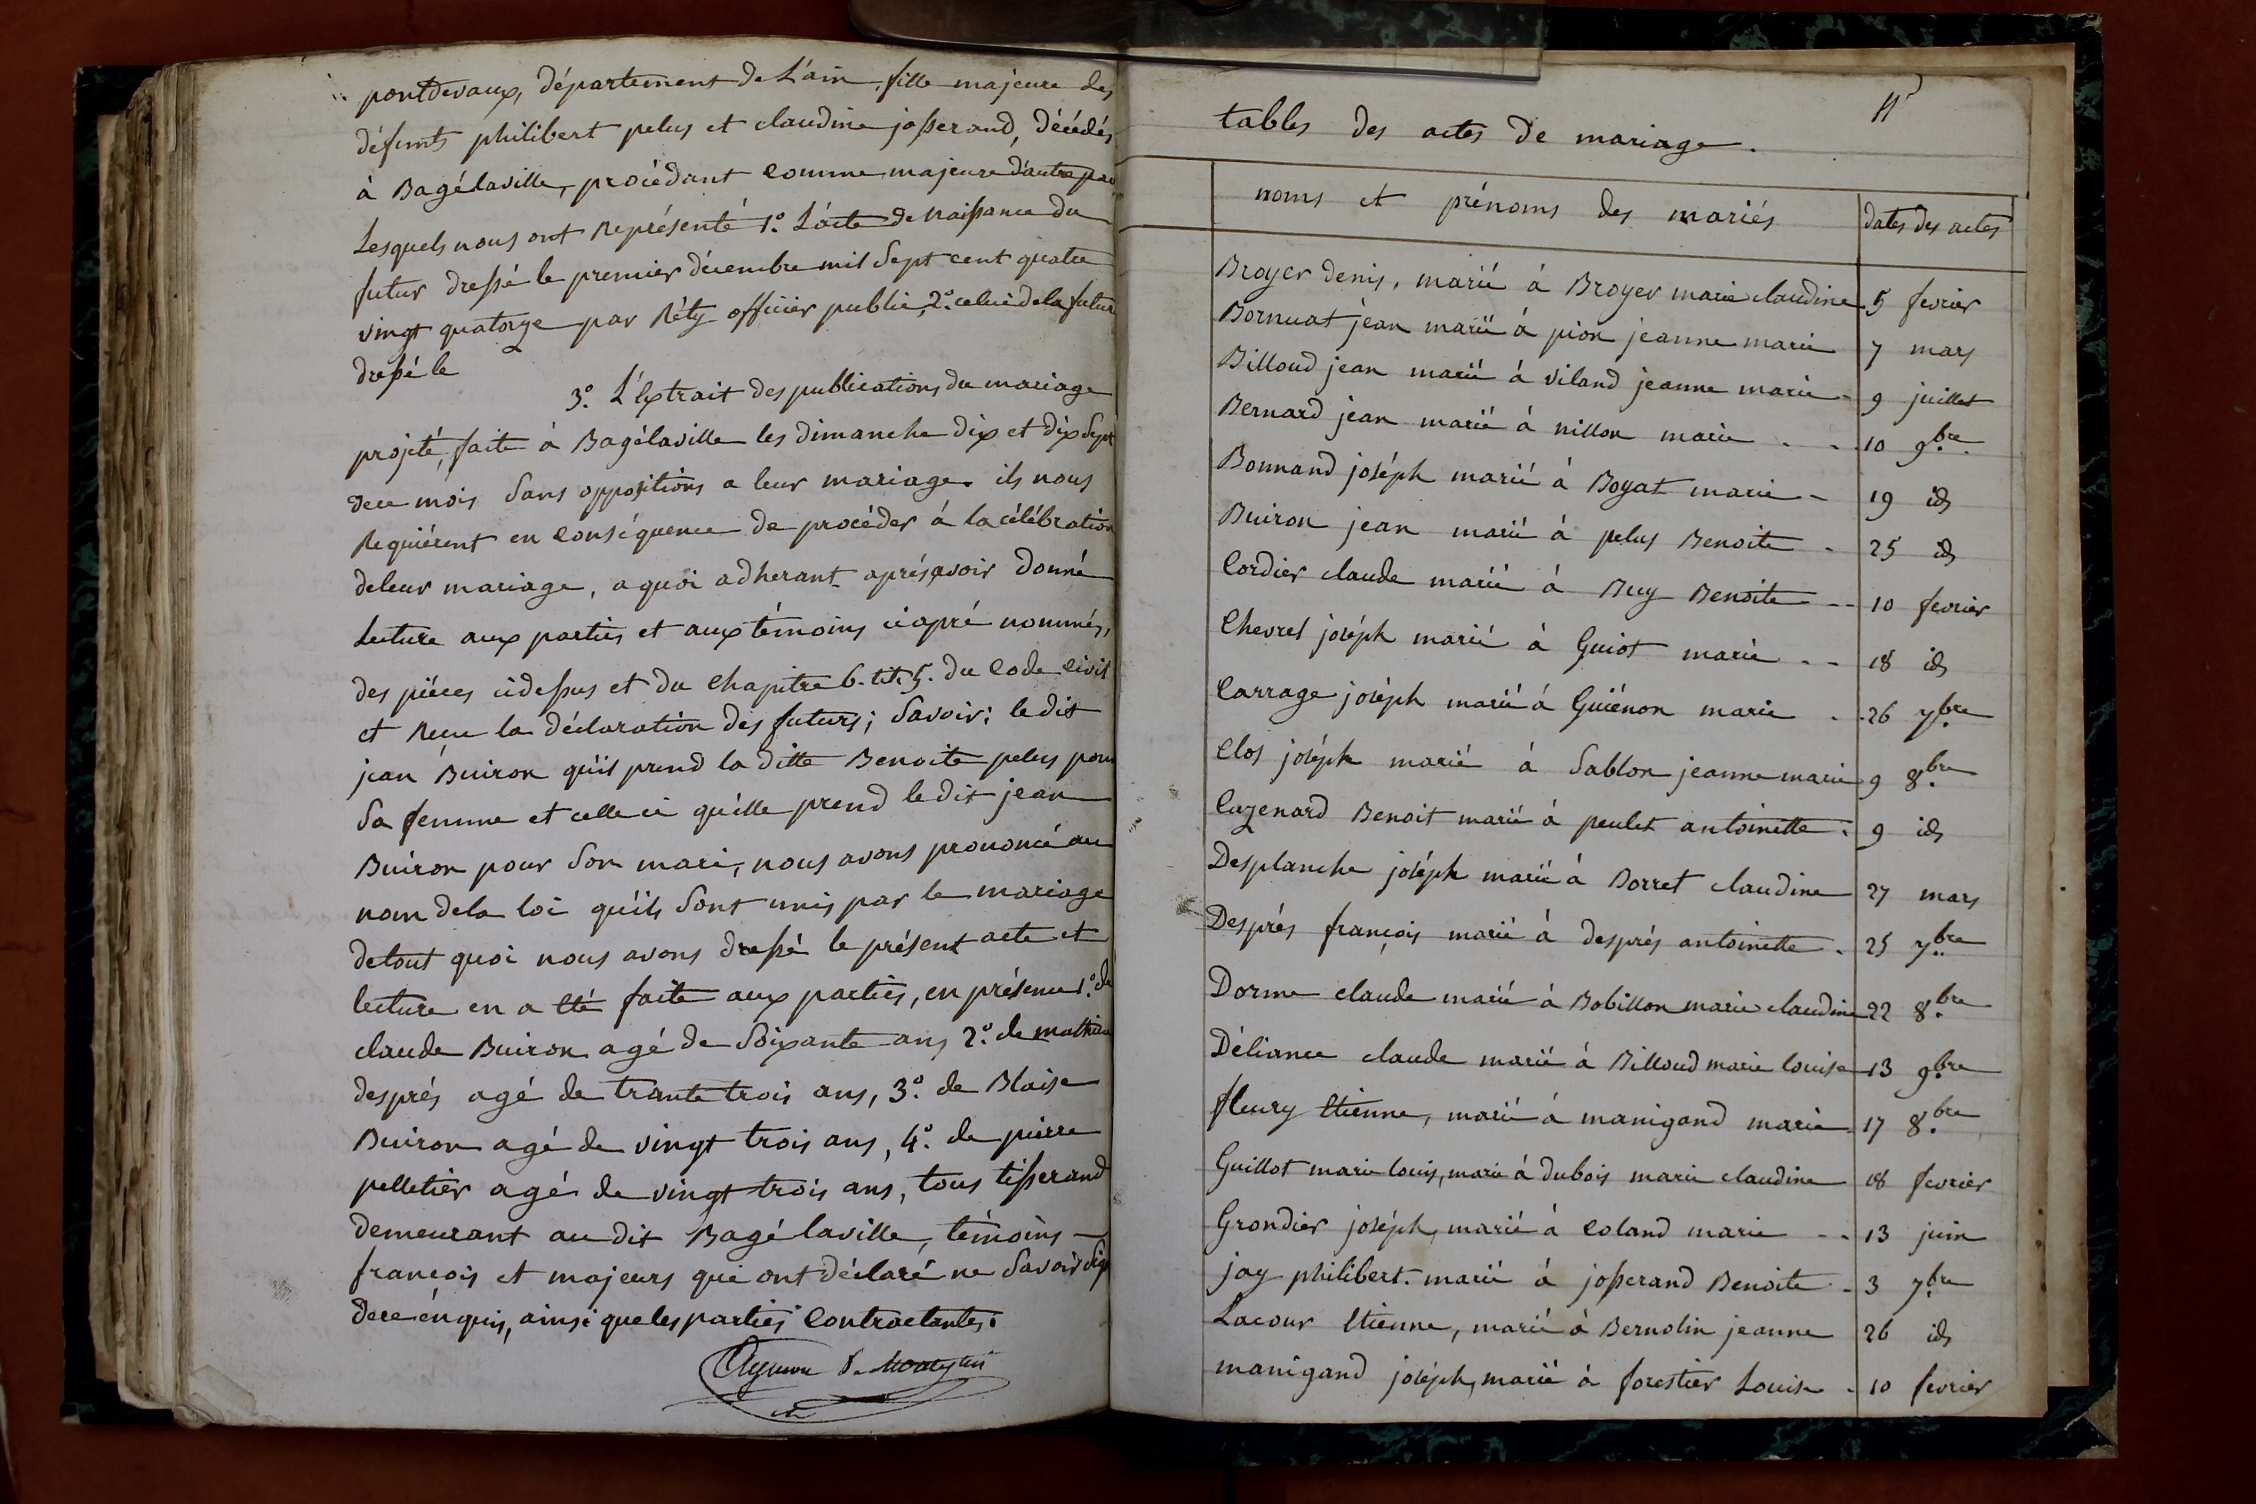 pontdevaux, département de L'ain, fille majeure des
défunts philibert pelus et claudine josserand, décédés
à Bagélaville, procédant comme majeure d'autre par
Lesquels nous ont Représenté 1.º L'acte de Naissance du
futur dressé le premier décembre mil Sept cent quatre
vingt quatorze par Réty officier public, 2.º celui dela futur
dressé le
3.º L'Extrait des publications du mariage
projeté, faite à Bagélaville les dimanche dix et dix Sept
dece mois Sans oppositions a leur mariage. ils nous
Requiérent en Conséquence de procéder à la célébration
deleur mariage, a quoi adherant aprés avoir donné
Lecture aux parties et aux témoins ciapré nommés,
des piéces cidessus et du Chapitre 6. tit. 5. du Code Civil
et Recu la déclaration des futurs; Savoir; le dit
jean Buiron qu'il prend la ditte Benoite pelus pour
Sa femme et celle ci qu'elle prend le dit jean
Buiron pour Son mari, nous avons prononcé au
nom dela loi qu'ils Sont unis par le mariage
detout quoi nous avons dressé le présent acte et
lecture en a été faite aux parties, en présence 1.º de
claude Buiron agé de Soixante ans, 2.º de mathieu
després agé de trante trois ans, 3.º de Blaise
Buiron agé de vingt trois ans, 4.º de pierre
pelletier agé de vingt trois ans, tous tisserand
demeurant au dit Bagé laville, témoins
francois et majeurs qui ont déclaré ne Savoir Sig
dece énquis, ainsi que les parties Contractantes.
tables des actes de mariage.
noms et prénoms des mariés dates des actes
Broyer denis, marié à Broyer marie claudine 5 fevrier
Bornuat jean marié à pion jeanne marie 7 mars
Billoud jean marié à viland jeanne marie 9 juillet
Bernard jean marié à nillon marie 10 9.bre
Bonnand joséph marié à Boyat marie 19 id
Buiron jean marié à pelus Benoite 25 id
Cordier claude marié à Buy Benoite 10 fevrier
Chevrel joséph marié à Guiot marie 18 id
Carrage joséph marié à Guiénon marie 26 7.bre
Clos joséph marié à Sablon jeanne marie 9 8.bre
Cazenard Benoit marié à peulet antoinette 9 id
Desplanche joséph marié à Borret claudine 27 mars
Després françois marié à després antoinette 25 7.bre
Dorme claude marié à Bobillon marie claudine 22 8.bre
Déliance claude marié à Billoud marie louise 13 9.bre
fleury Etienne, marié à manigand marie 17 8.bre
Guillot marie louis, marié à dubois marie claudine 18 fevrier
Grondier joséph, marié à Coland marie 13 juin
jay philibert. marié à josserand Benoite 3 7.bre
Lacour Etienne, marié à Bernolin jeanne 26 id
manigand joséph, marié à forestier Louise 10 fevrier